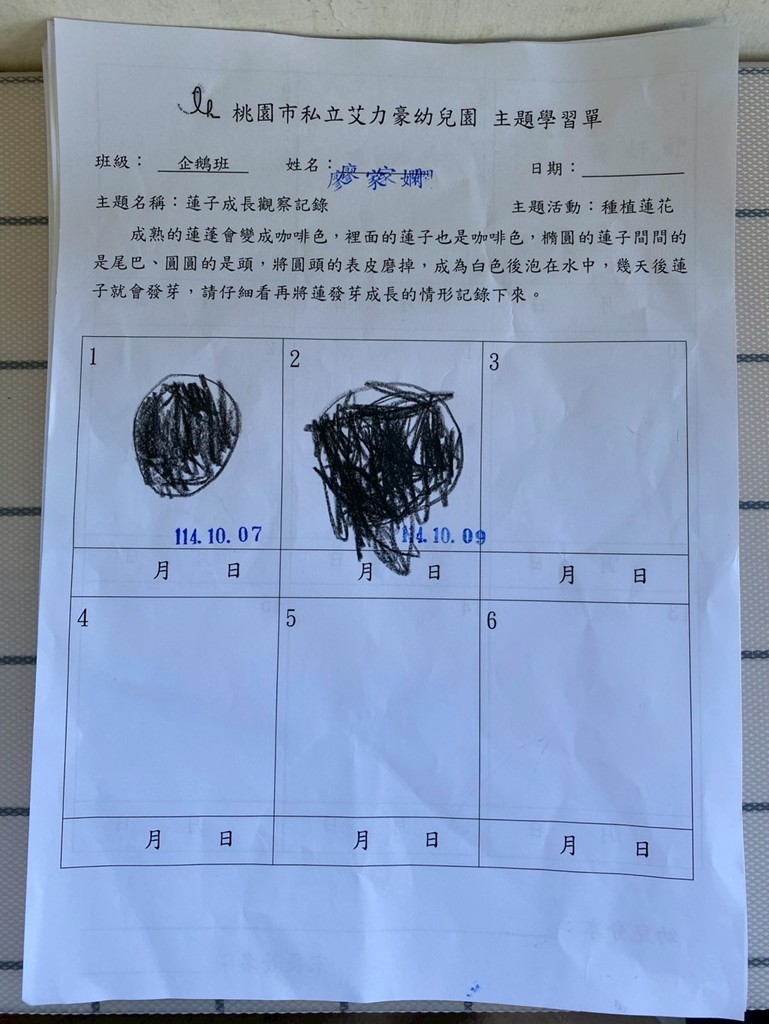 桃園市私立艾力豪幼兒園 主題學習單
班級： 企鵝班 姓名： 廖家嫻 日期：
主題名稱：蓮子成長觀察記錄 主題活動：種植蓮花
成熟的蓮蓬會變成咖啡色，裡面的蓮子也是咖啡色，橢圓的蓮子間間的
是尾巴、圓圓的是頭，將圓頭的表皮磨掉，成為白色後泡在水中，幾天後蓮
子就會發芽，請仔細看再將蓮發芽成長的情形記錄下來。
1 2 3
114.10.07 114.10.09
月 日 月 日 月 日
4 5 6
月 日 月 日 月 日